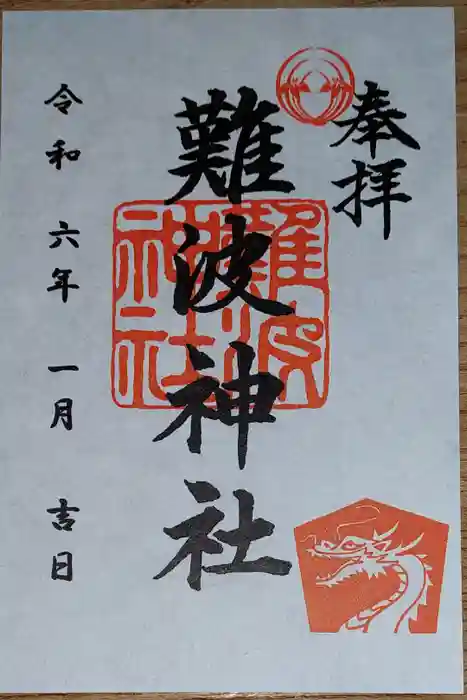 奉拝
難波神社
難波神社
令和 六年 一月 吉日